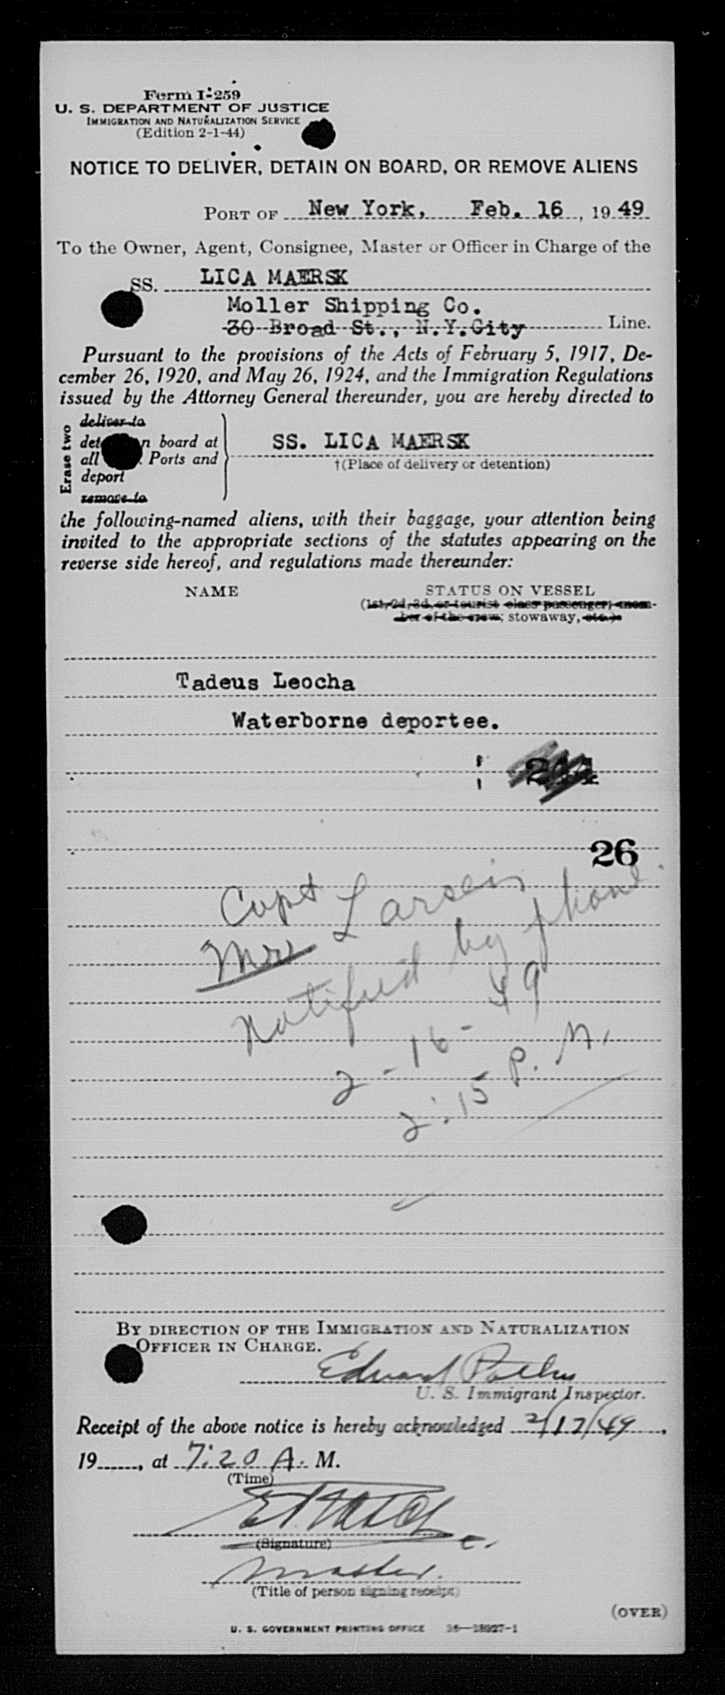 Form I-259
U. S. DEPARTMENT OF JUSTICE
IMMIGRATION AND NATURALIZATION SERVICE
(Edition 2-1-44)
NOTICE TO DELIVER, DETAIN ON BOARD, OR REMOVE ALIENS
PORT OF New York, Feb. 16, 1949
To the Owner, Agent, Consignee, Master or Officer in Charge of the
SS. LICA MAERSK
Moller Shipping Co.
30 Broad St., N.Y.City Line.
Pursuant to the provisions of the Acts of February 5, 1917, De-
cember 26, 1920, and May 26, 1924, and the Immigration Regulations
issued by the Attorney General thereunder, you are hereby directed to
Erase two
deliver to
det n board at
all Ports and
deport
remove to
SS. LICA MAERSK
†(Place of delivery or detention)
the following-named aliens, with their baggage, your attention being
invited to the appropriate sections of the statutes appearing on the
reverse side hereof, and regulations made thereunder:
NAME STATUS ON VESSEL
(1st, 2d, 3d, or tourist class passenger, mem-
ber of the crew, stowaway, etc.)
Tadeus Leocha
Waterborne deportee.
26
Capt Larsen
notified by phone
2-16-49
2:15 P. M.
BY DIRECTION OF THE IMMIGRATION AND NATURALIZATION
OFFICER IN CHARGE.
Edward
U. S. Immigrant Inspector.
Receipt of the above notice is hereby acknowledged 2/17/49,
19, at 7:20 A. M.
(Time)
(Signature)
Master.
(Title of person signing receipt)
(OVER)
U. S. GOVERNMENT PRINTING OFFICE 16—18927-1